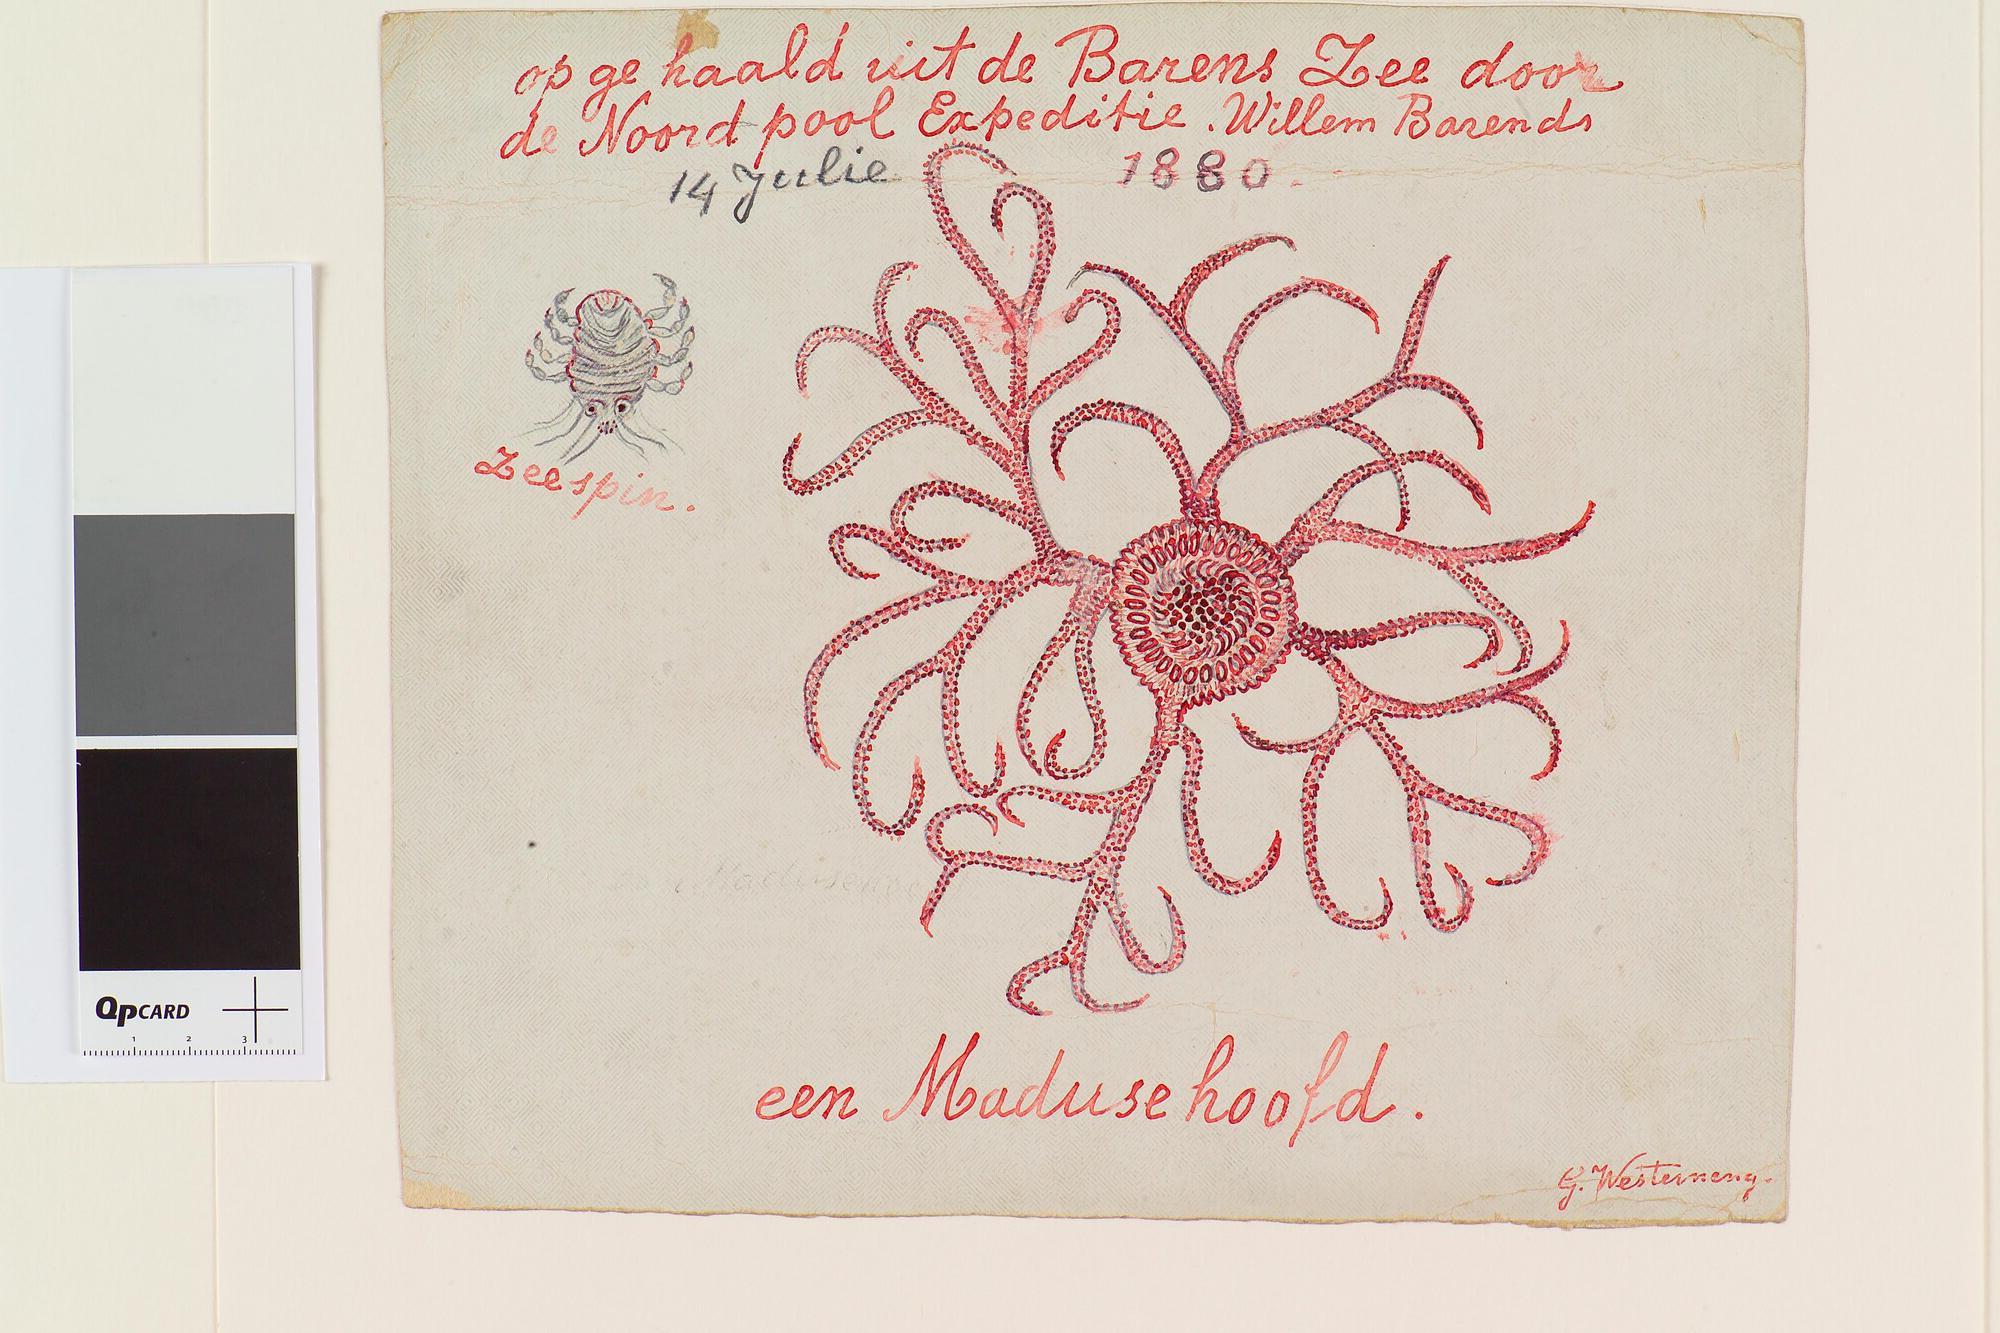 op ge haald uit de Barens Zee door
de Noord pool Expeditie. Willem Barends
14 Julie 1880.
Zee spin.
een Maduse hoofd.
G. Westerneng.
QPCARD
1 2 3